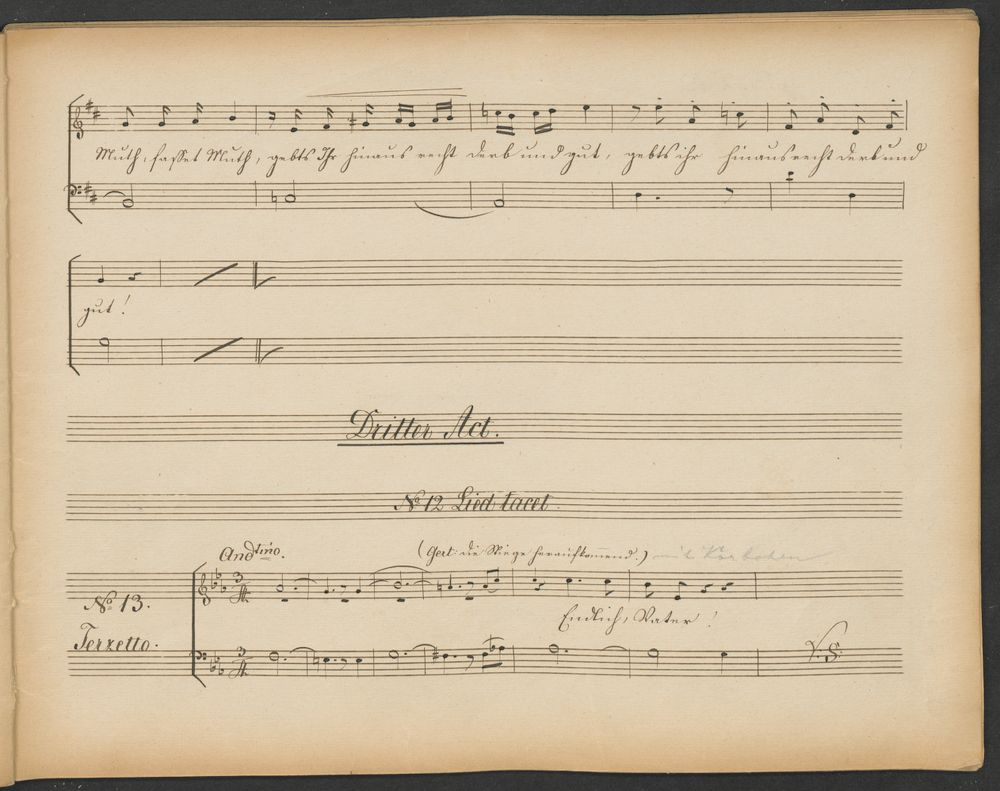 Muth, fasset Muth, gebts Ihr hinaus recht derb und gut, gebts ihr hinaus recht derb und
gut!
Dritter Act.
No 12 Lied tacet.
Andtino.
(Gert: die Stiege heraufkommend.) mit
No 13.
Terzetto.
3/4
Endlich, Vater!
3/4
V. S.